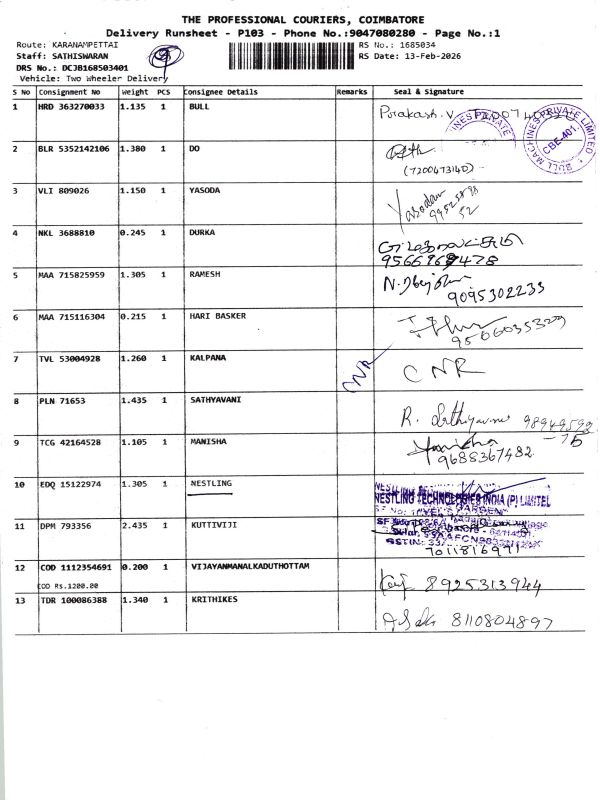 THE PROFESSIONAL COURIERS, COIMBATORE
Delivery Runsheet - P103 - Phone No.:9047080280 - Page No.:1
Route: KARANAMPETTAI
RS No.: 1685034
Staff: SATHISWARAN
RS Date: 13-Feb-2026
DRS No.: DCJB168503401
Vehicle: Two Wheeler Delivery
S No Consignment No Weight PCS Consignee Details Remarks Seal & Signature
1 HRD 363270033 1.135 1 BULL Prakash.V
BULL MACHINES PRIVATE LIMITED
CBE-401
2 BLR 5352142106 1.380 1 DO
(7200473140)
3 VLI 809026 1.150 1 YASODA Yasodav
52
4 NKL 3688810 0.245 1 DURKA
5 MAA 715825959 1.305 1 RAMESH
9095302233
6 MAA 715116304 0.215 1 HARI BASKER
9506035329
7 TVL 53004928 1.260 1 KALPANA CNR CNR
8 PLN 71653 1.435 1 SATHYAVANI R.
9 TCG 42164528 1.105 1 MANISHA Manisha
9688367482
10 EDQ 15122974 1.305 1 NESTLING
NESTLING TECHNOLOGIES INDIA (P) LIMITED
11 DPM 793356 2.435 1 KUTTIVIJI
7011816991
12 COD 1112354691 0.200 1 VIJAYANMANALKADUTHOTTAM
COD Rs.1200.00
8925313944
13 TDR 100086388 1.340 1 KRITHIKES 8110804897